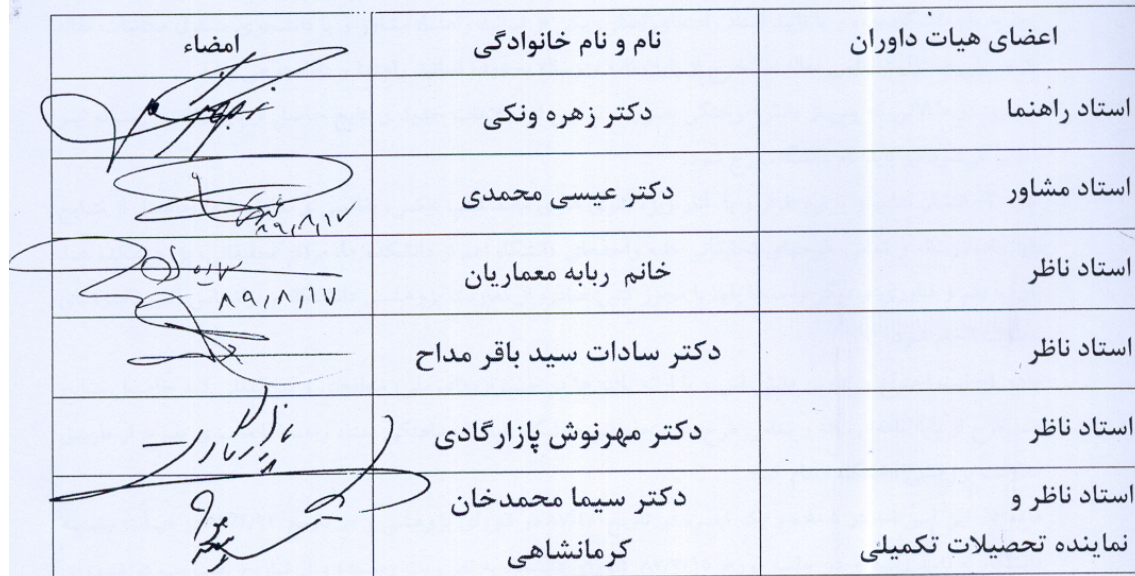 اعضای هیات داوران نام و نام خانوادگی امضاء
استاد راهنما دکتر زهره ونکی
استاد مشاور دکتر عیسی محمدی ۸۹٫۸٫۱۷
استاد ناظر خانم ربابه معماریان
۸۹٫۸٫۱۷
استاد ناظر دکتر سادات سید باقر مداح
استاد ناظر دکتر مهرنوش پازارگادی
استاد ناظر و دکتر سیما محمدخان
نماینده تحصیلات تکمیلی کرمانشاهی